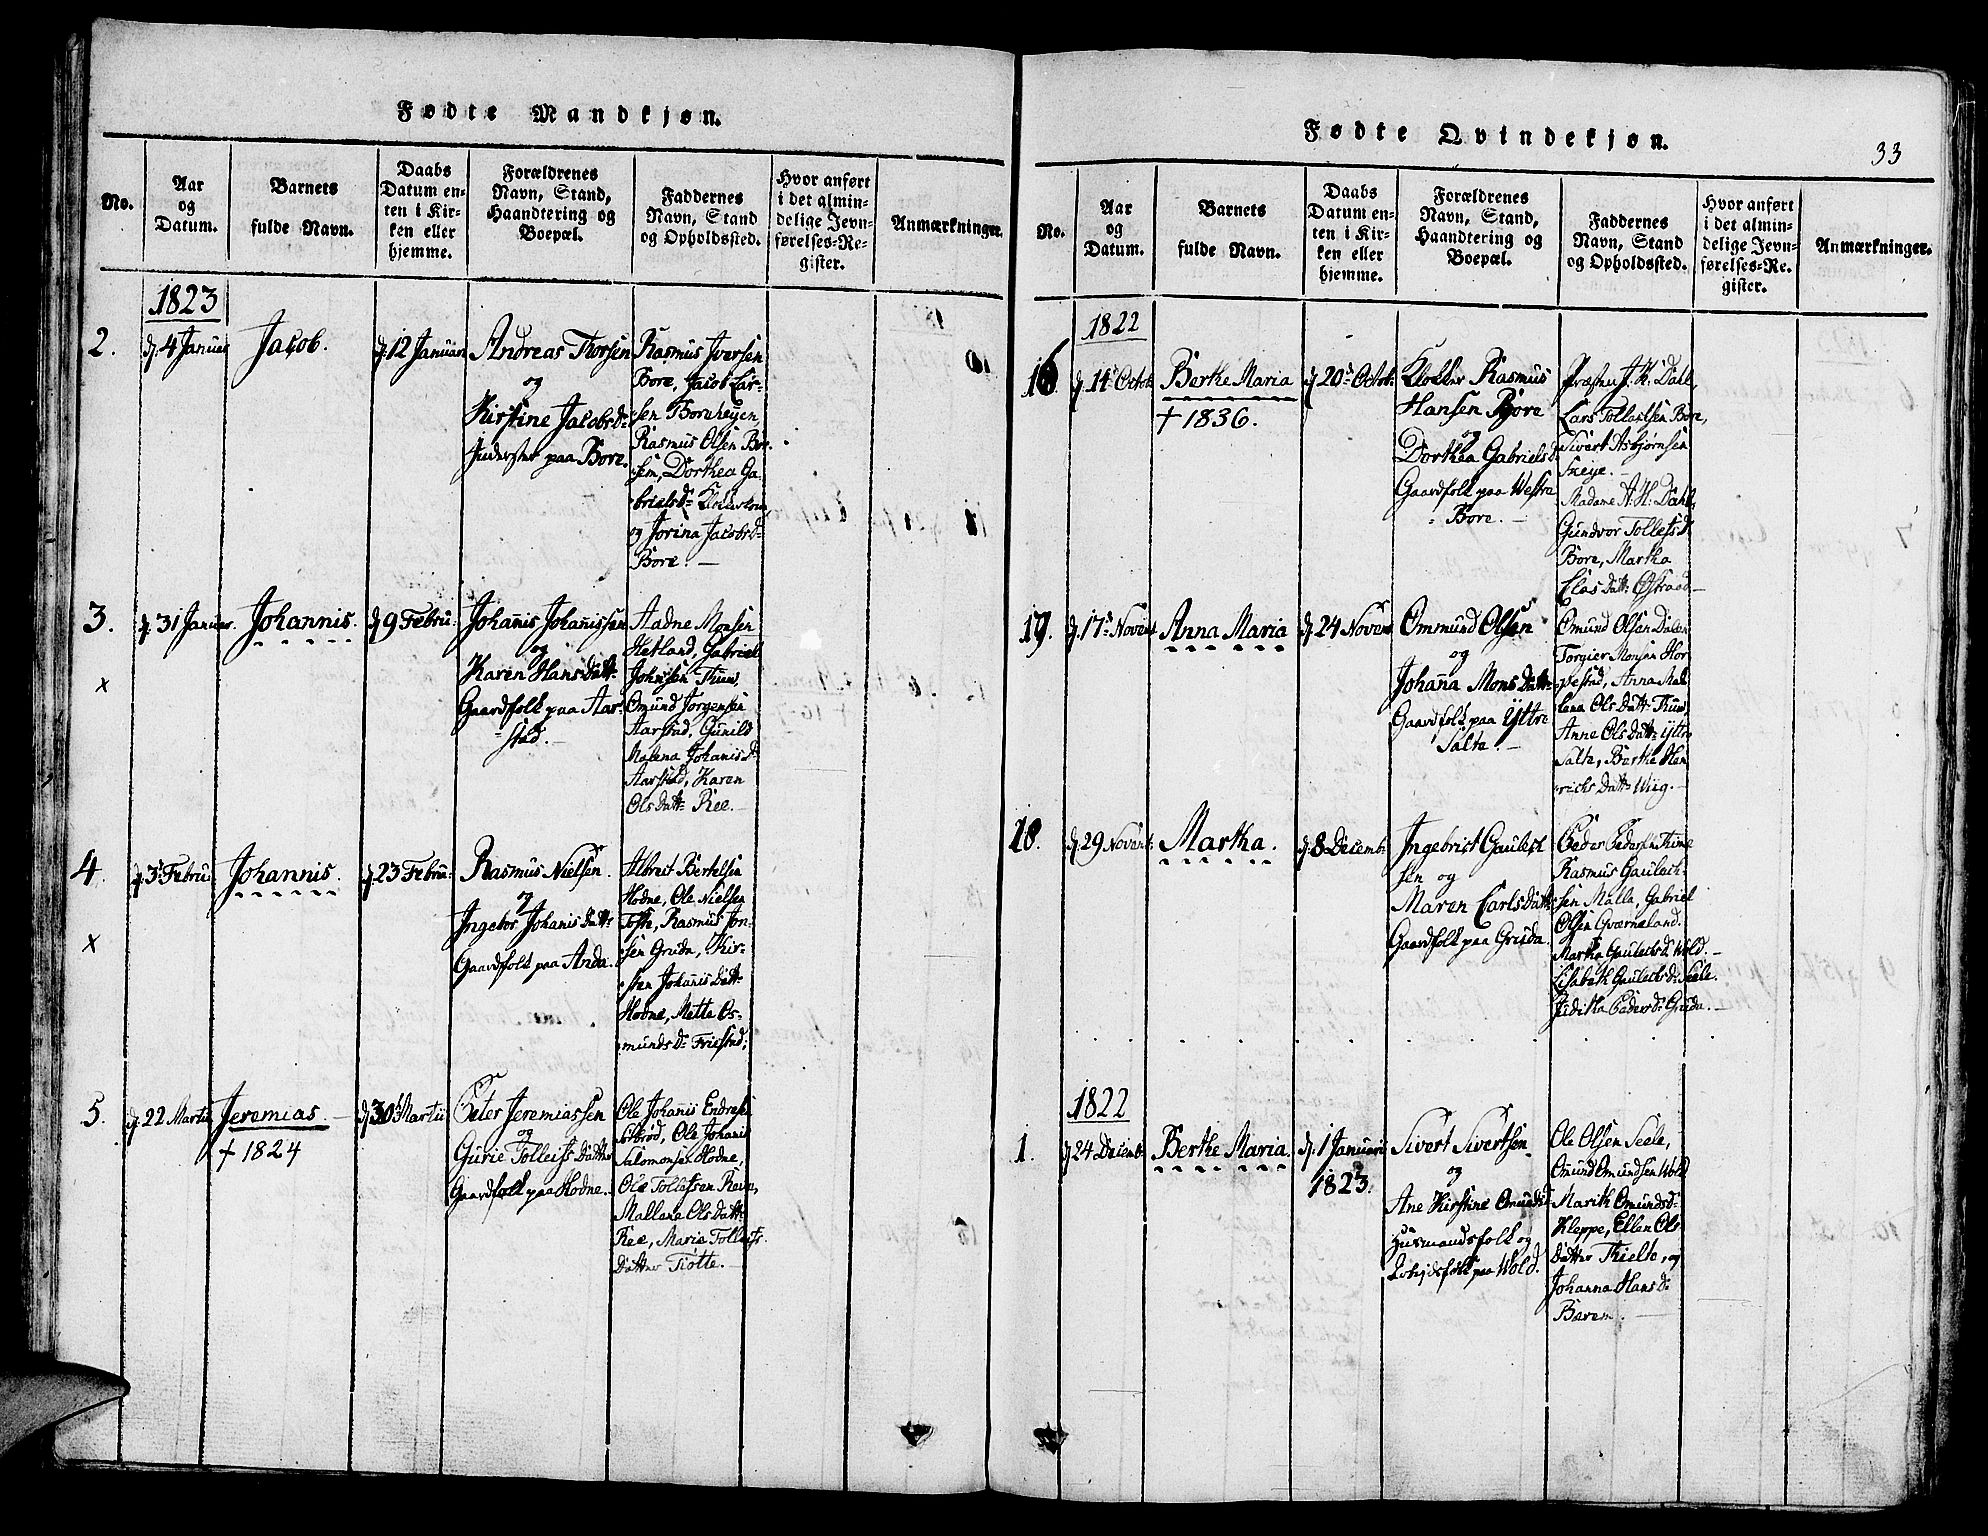 Fødte Mandkjøn.
No.
Aar
og
Datum.
Barnets
fulde Navn.
Daabs
Datum en-
ten i Kir-
ken eller
hjemme.
Forældrenes
Navn, Stand,
Haandtering og
Boepæl.
Faddernes
Navn, Stand
og Opholdssted.
Hvor anført
i det almin-
delige Jevn-
førelses-Re-
gister.
Anmærkninger.
1823
2.
d. 4 Januar
Jacob.
d. 12 Januar
Andreas Thorsen
og
Kirstine Jacobsd-
Inderster paa Bore.
Rasmus Iversen
Bore, Jacob Lar-
sen Boreheyen
Rasmus Olsen Bo-
sem, Dorthea Ga-
brielsd-
og Jorina Jacobsd-
Bore. —
3.
x
d. 31 Januar.
Johannis.
d. 9 Febru:
Johanis Johanissen
og
Karen Hansdatt-
Gaardfolk paa Aar-
stad. —
Aadne Monsen
Hetland, Gabriel
Johnsen Tiuw
Omund Jorgensen
Aarstad, Gunild
Malena Johanisd-
Aarstad, Karen
Olsdatt- Ree. —
4.
x
d. 3 Febru
Johannis.
d. 23 Febru-
Rasmus Nielsen.
og
Ingebor Johanisdatt-
Gaardfolk paa Anda.
Albreit Bertelsen
Hodne, Ole Nielsen
Tosse, Rasmus Jon-
sen Gruda, Kir-
sten Johanisdatt-
Hodne, Mette Os-
munds d- Friestad;
5.
d. 22 Martii
Jeremias. —
† 1824
d. 30 Martii
Peter Jeremiassen
og
Gurie Tolleifsdatter
Gaardfolk paa Hodne.
Ole Johanis Endresen
Solbrød, Ole Johanis
Salomonsen Hodne,
Ole Tollefsen Reve,
Mallene Olsdatt-
Ree, Marie Tolleifs
Datter Tiøtte. —
Fødte Qvindekjøn.
33
No.
Aar
og
Datum.
Barnets
fulde Navn.
Daabs
Datum en-
ten i Kir-
ken eller
hjemme.
Forældrenes
Navn, Stand,
Haandtering og
Boepæl.
Faddernes
Navn, Stand
og Opholdssted.
Hvor anført
i det almin-
delige Jevn-
førelses-Re-
gister.
Anmærkninger.
1822
16
d. 14 Octob.
Berthe Maria
† 1836.
d. 20 Octob.
Klokker Rasmus
Hansen Bore
og
Dorthea Gabrielsd
Gaardfolk paa Westre
Bore. —
Præsten J. K. Dahl,
Lars Tollefsen Bore,
Sivert Asbjørnsen
Freye. —
Madame A. H. Dahl,
Gundvor Tollefsd
Bore, Martha
Elasdatt- Østraad —
17.
d. 17 Novemb
Anna Maria
d. 24 Novemb
Ommund Olsen
og
Johanna Monsdatt-
Gaardfolk paa Yttre
Salte —
Omund Olsen Dalen
Torgier Monsen Hor-
pestad, Anna Mal-
lena Olsdatt- Tiuw
Anne Olsdatt- Yttre
Salte, Berthe Hen
richs Datt- Wiig. —
18.
d. 29 Novemb:
Martha.
d. 8 Decemb:
Ingebrict Gautest
sen og
Maren Carlsdatt-
Gaardfolk paa Gruda.
Peder Pedersen Time
Rasmus Gautech-
sen Malle, Gabriel
Olsen Qværneland.
Martha Gautechsd- Wold. —
Elisabeth Gautechsd- Seele.
Jiditha Pedersd- Gruda. —
1822
1.
d. 24 Decemb:
Berthe Maria.
d. 1 Januari
1823.
Sivert Sivertsen.
og
Ane Kirstine Omundsd
Husmandsfolk og
Arbejdsfolk paa Wold.
Ole Olsen Seele,
Omund Omundsen Wold
Marith Omundsd-
Kleppe, Ellen Ols
datter Tielta, og
Johanna Hansd-
Bærem. —